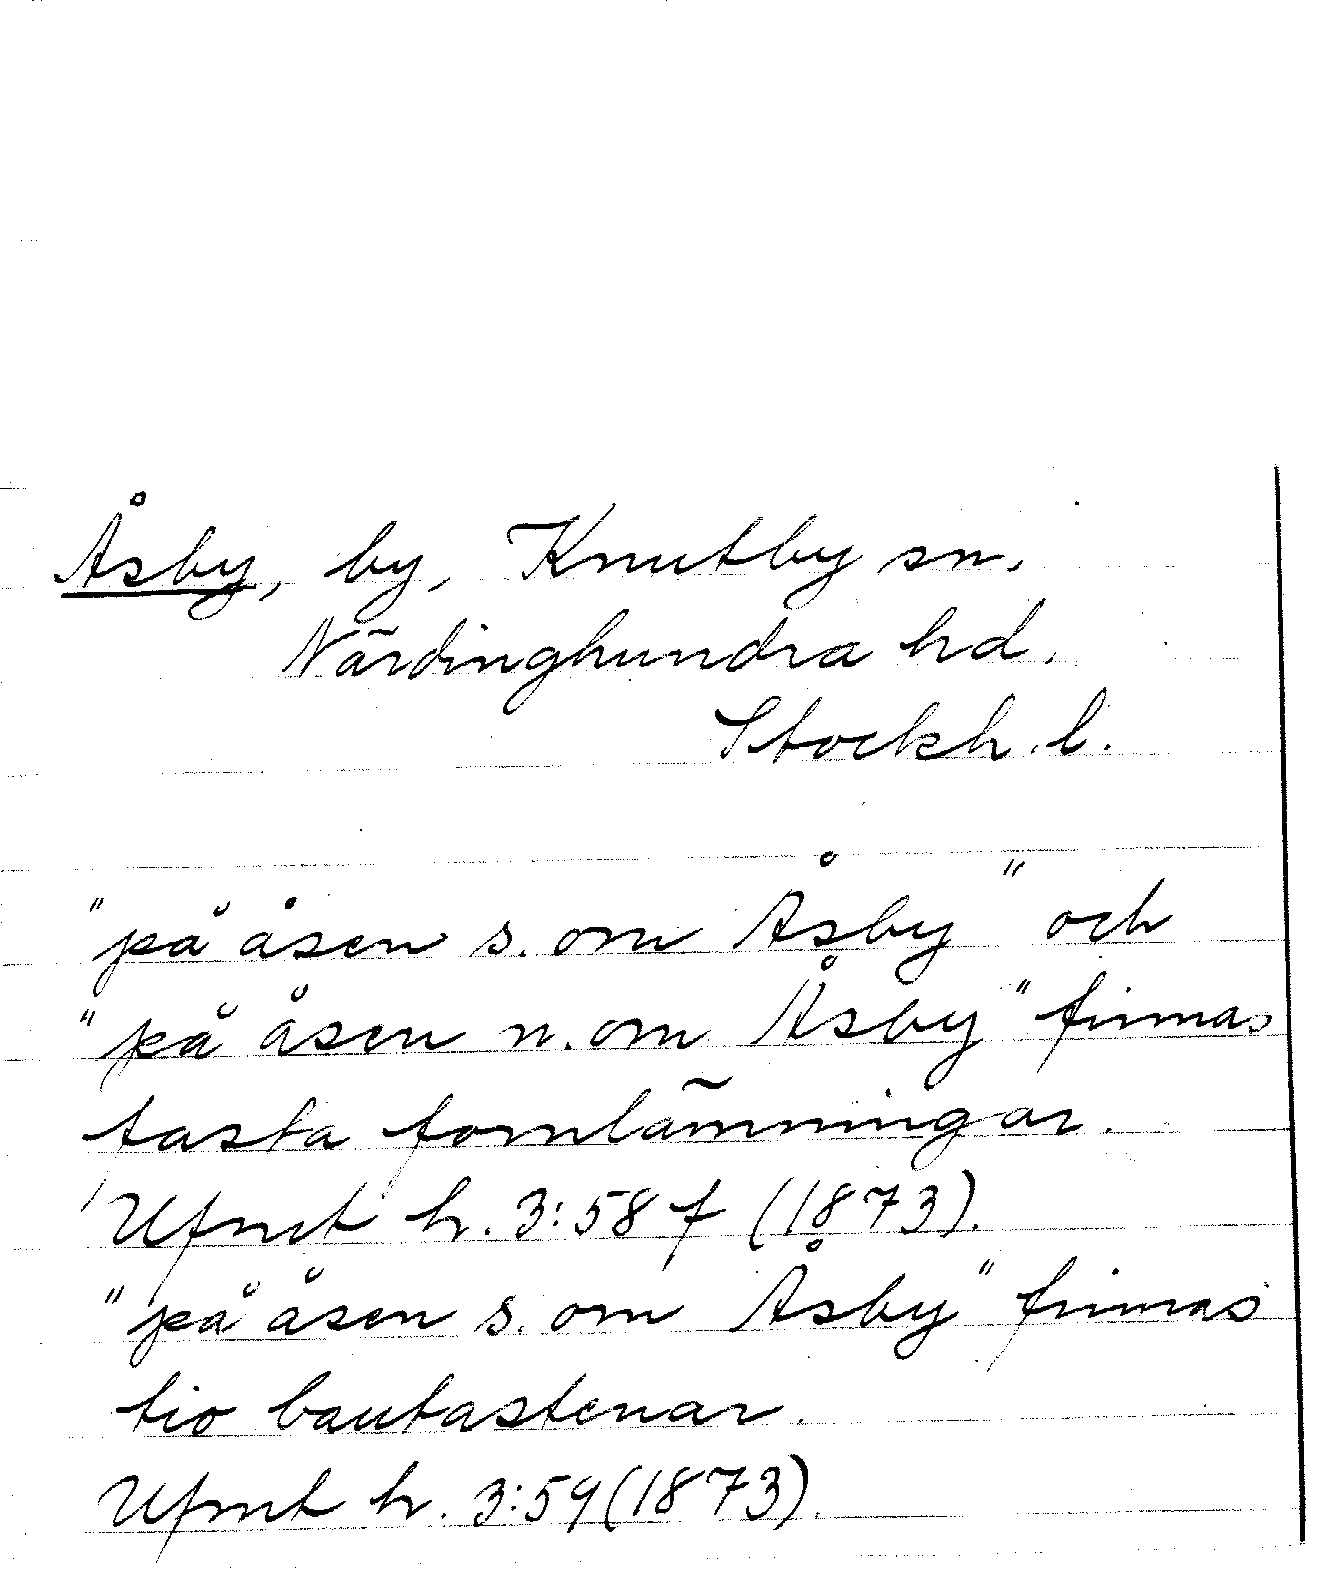 Åsby, by, Knutby sn.
Närdinghundra hd.
Stockh. l.
"på åsen s. om Åsby" och
"på åsen n. om Åsby" finnas
fasta fornlämningar.
Ufmt h. 3:58 f (1873).
"på åsen s. om Åsby" finnas
tio bautastenar.
Ufmt h. 3:59 (1873).